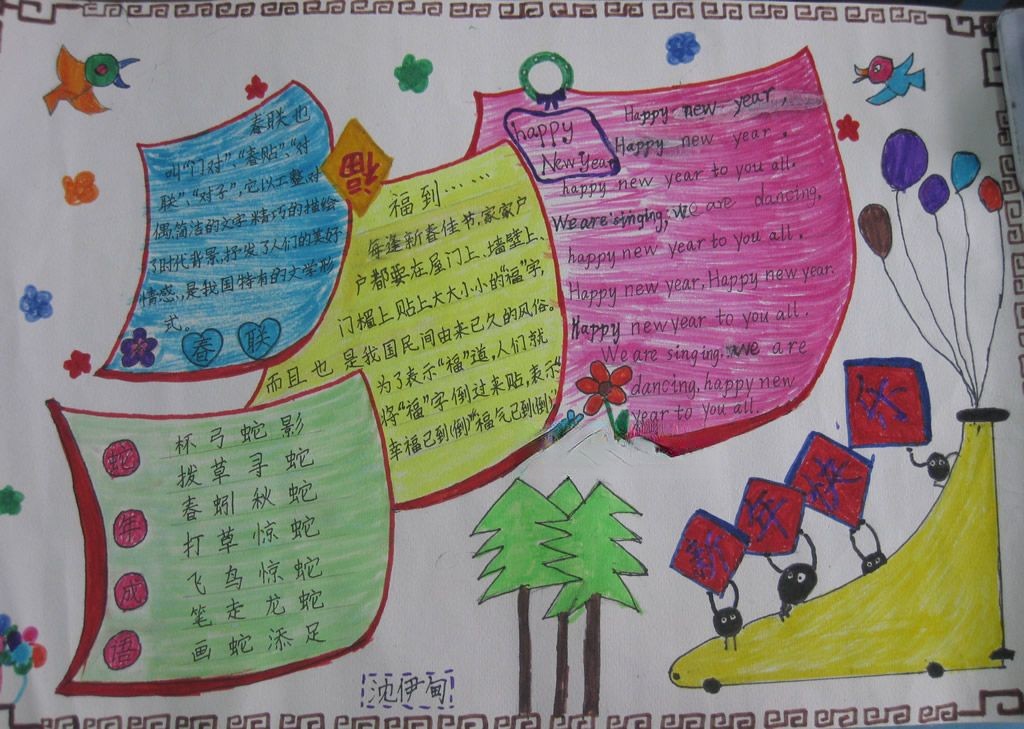 春联也
叫“门对”、“春贴”、“对
联”、“对子”,它以工整、对
偶、简洁的文字精巧的描绘
了时代背景,抒发了人们的美好
情感,是我国特有的文学形
式。
春 联
福
福到……
每逢新春佳节,家家户
户都要在屋门上、墙壁上、
门楣上贴上大大小小的“福”字,
而且也是我国民间由来已久的风俗。
为了表示“福”道,人们就
将“福”字倒过来贴,表示“
幸福已到(倒)”“福气已到(倒)
happy
New Year
Happy new year,
Happy new year.
happy new year to you all.
We are singing, we are dancing,
happy new year to you all.
Happy new year, Happy new year.
Happy new year to you all.
We are singing. we are
dancing, happy new
year to you all.
蛇年成语
杯弓蛇影
拨草寻蛇
春蚓秋蛇
打草惊蛇
飞鸟惊蛇
笔走龙蛇
画蛇添足
新年快乐
沈伊甸